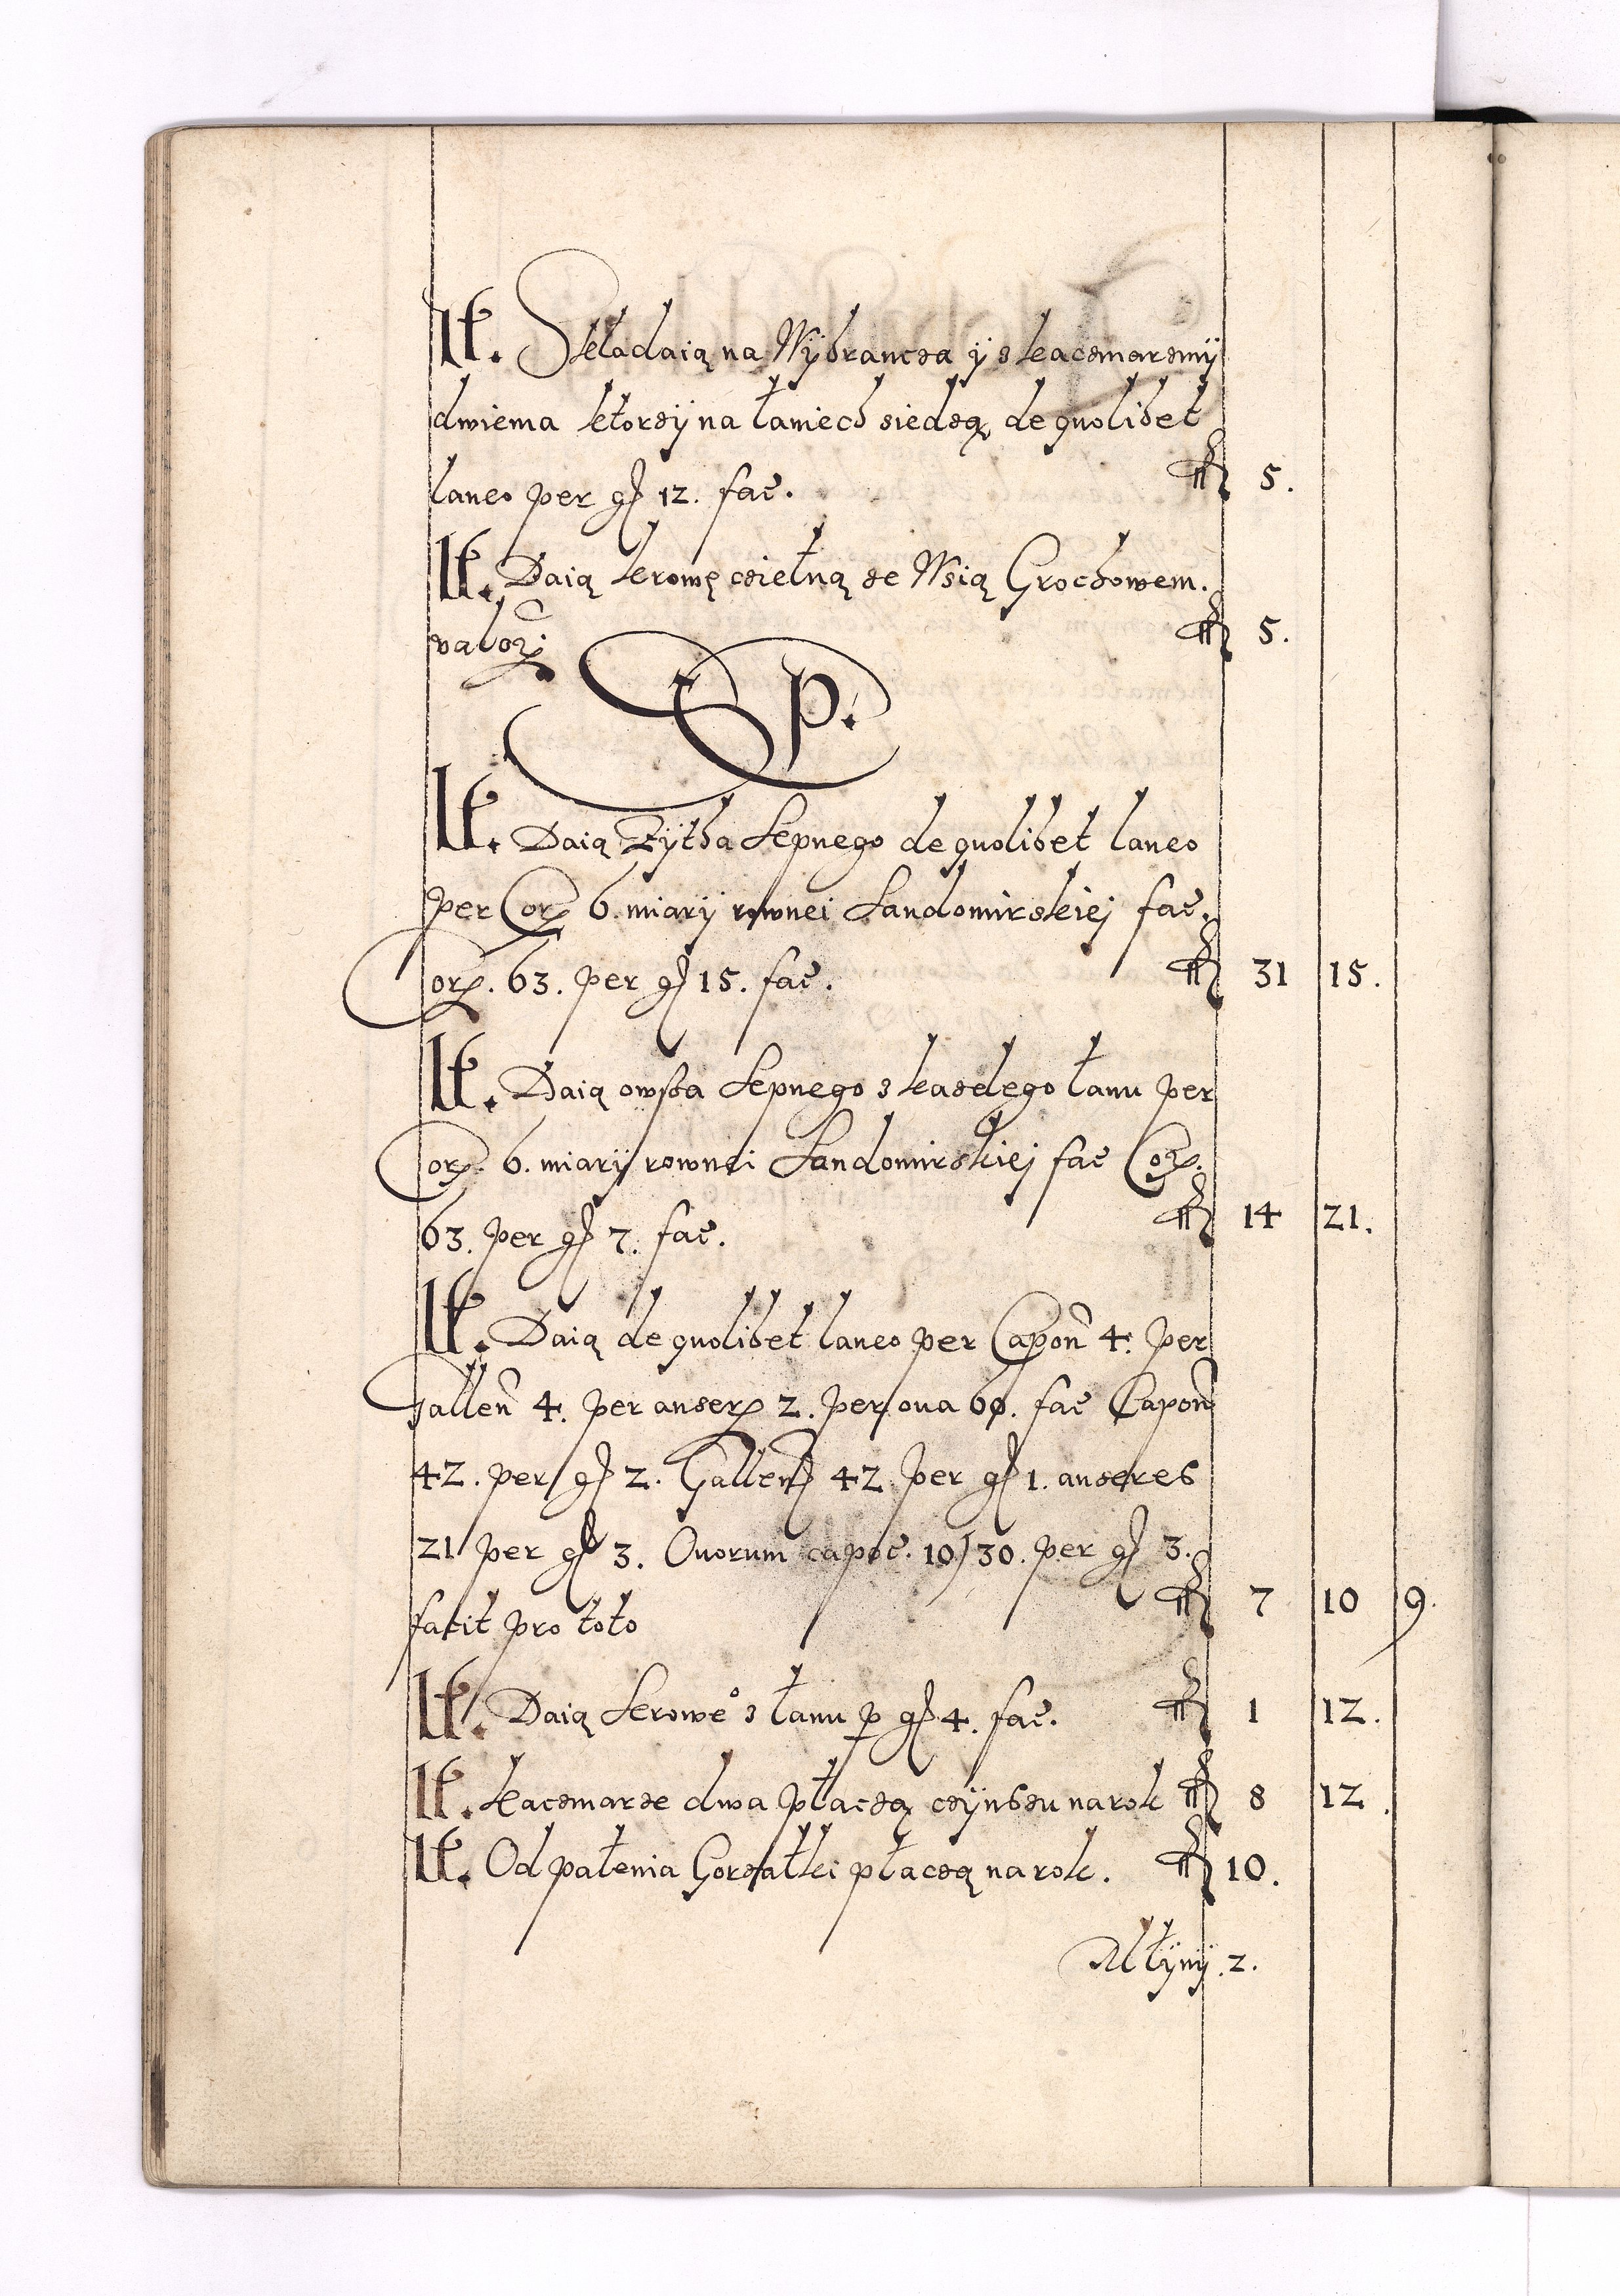 It. Składaią na Wybrancza y s kaczmarzmy
dwiema ktorzy na łaniech siedzą, de quolibet
laneo per gr 12. fac. fl 5.
It. Daią krowę czielną ze Wsią Grochowem.
valor. fl 5.
p.
It. Daią Zytha Sepnego de quolibet laneo
per Cor. 6. miary rownei Sandomirskiej fac.
Cor. 63. per gr 15. fac. fl 31 15.
It. Daią owsa Sepnego s kazdego łanu per
Cor. 6. miary rownei Sandomirskiej fac Cor.
63. per gr 7. fac. fl 14 21.
It. Daią de quolibet laneo per Capon 4. per
Gallen 4. per anser. 2. per oua 60. fac Capon
42. per gr 2. Gallen 42 per gr 1. anseres
21 per gr 3. Ouorum capoc. 10/30. per gr 3.
facit pro toto fl 7 10 9.
It. Daią Serowe s łanu p gr 4. fac. fl 1 12.
It. kaczmarze dwa płaczą czynszu na rok fl 8 12.
It. Od palenia Gorzałki płaczą na rok. fl 10.
Młyny. 2.